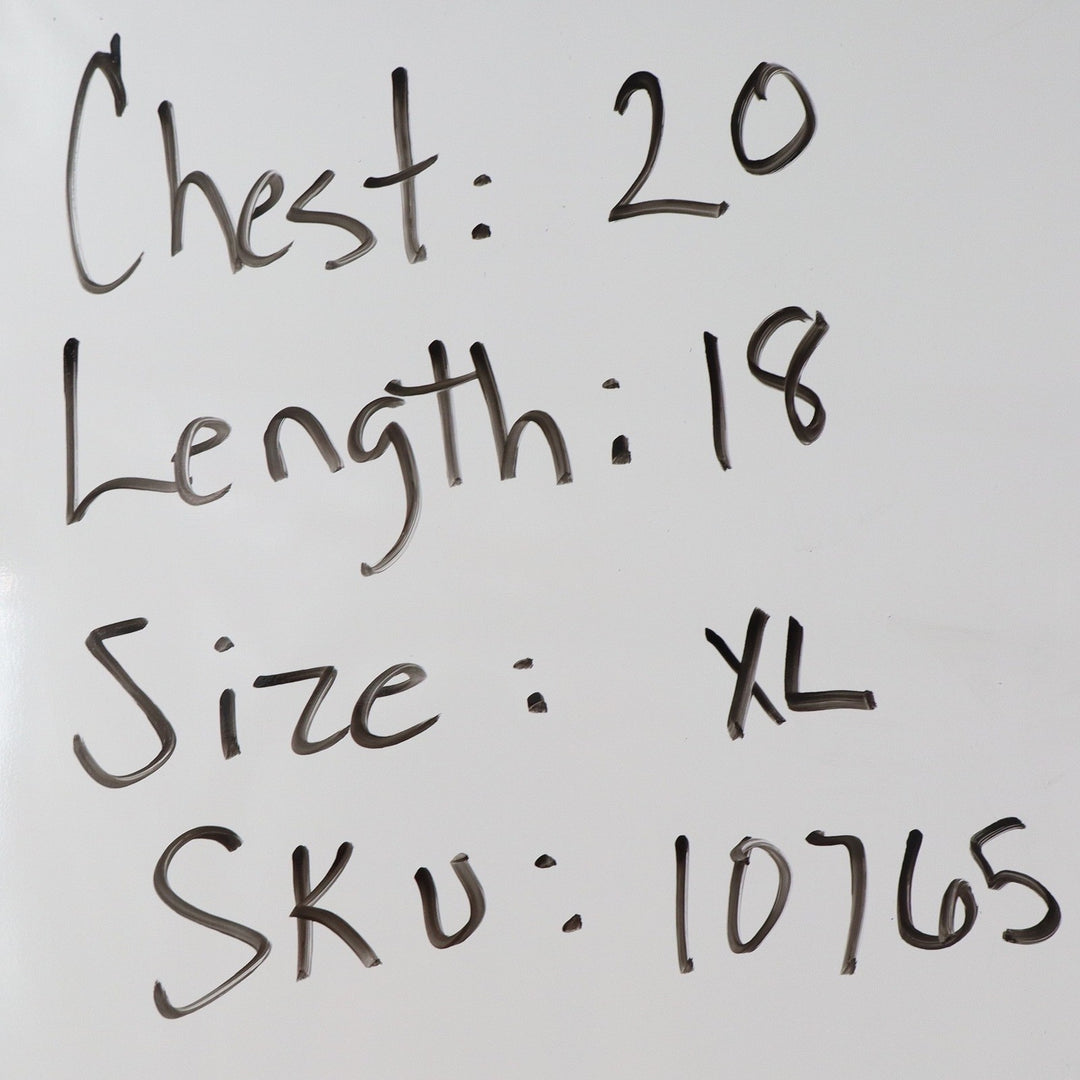 Chest: 20
Length: 18
Size: XL
SKU: 10765